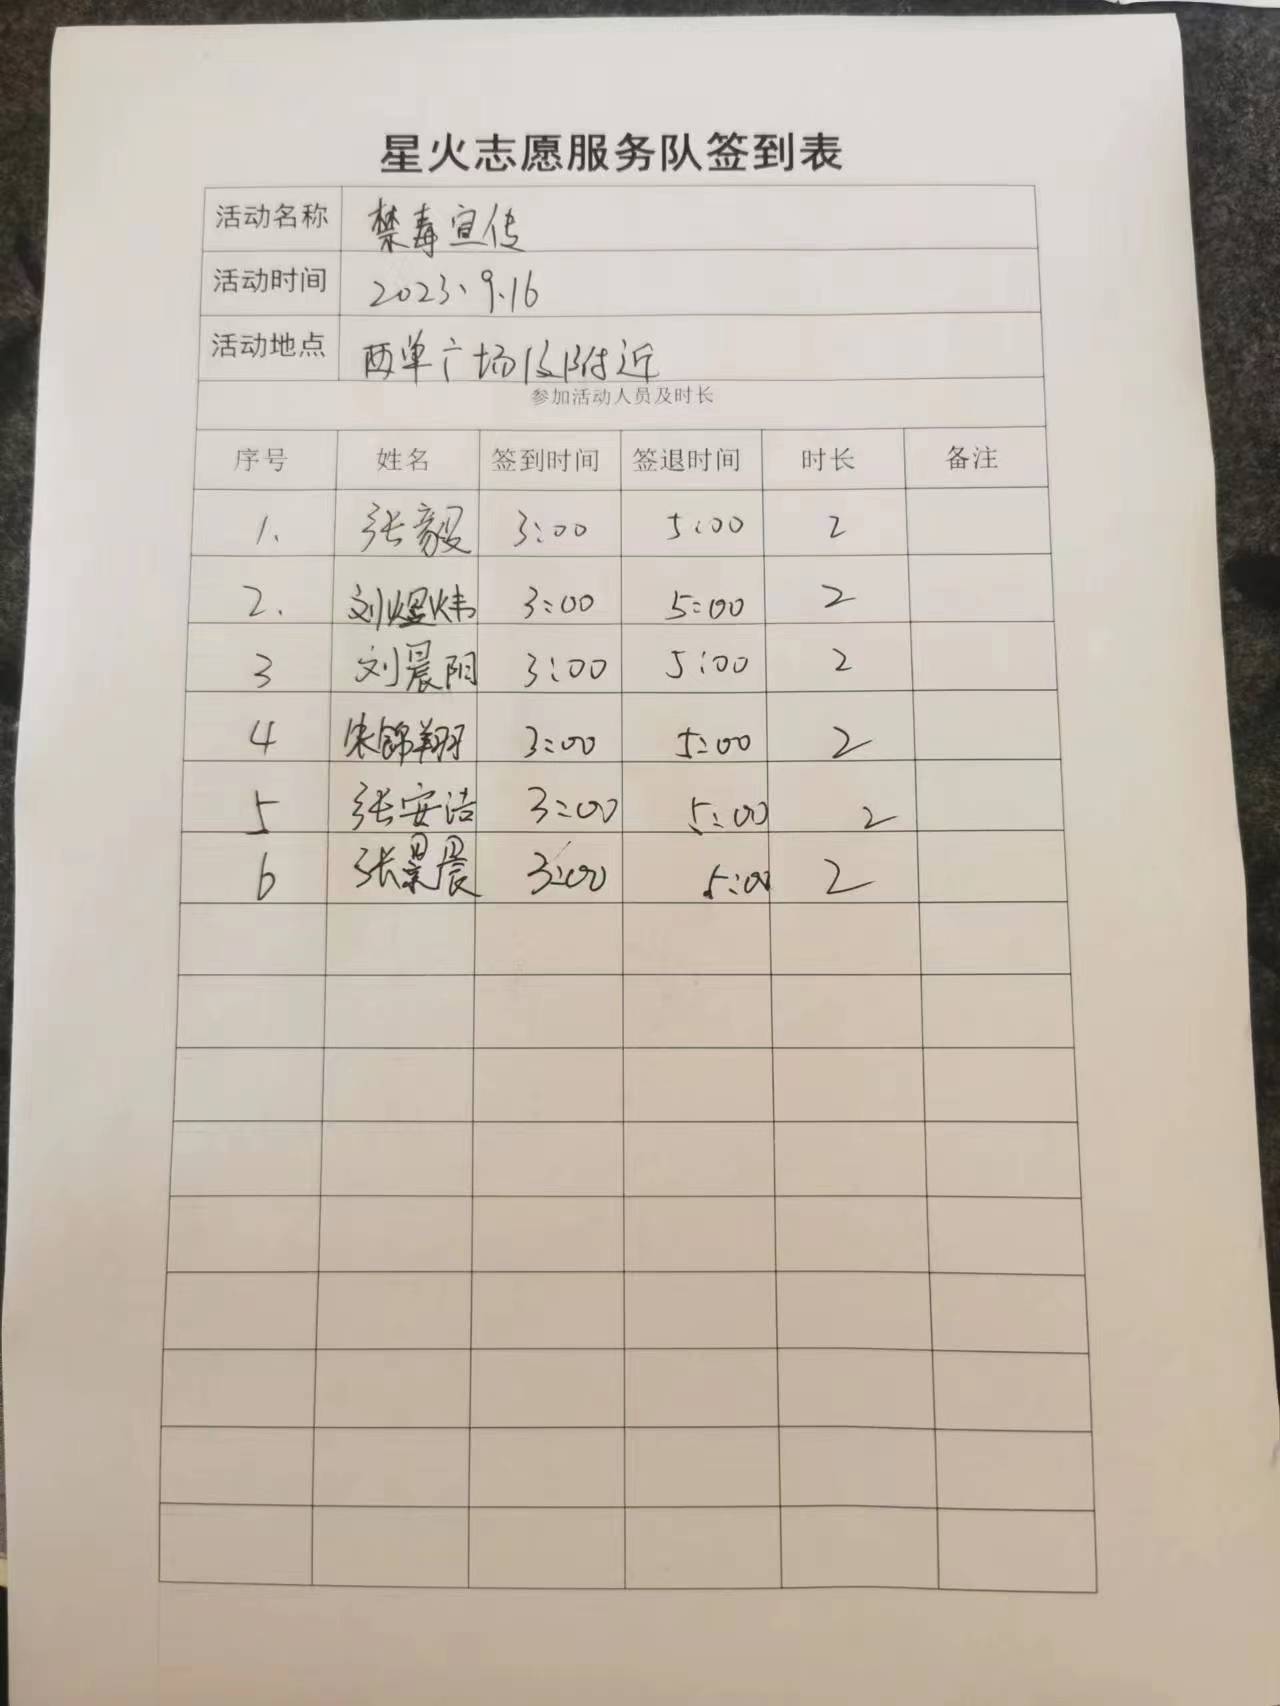 星火志愿服务队签到表
活动名称 禁毒宣传
活动时间 2023、9.16
活动地点 西单广场及附近
参加活动人员及时长
序号 姓名 签到时间 签退时间 时长 备注
1. 张毅 3:00 5:00 2
2. 刘煜炜 3:00 5:00 2
3 刘晨阳 3:00 5:00 2
4 宋锦翔 3:00 5:00 2
5 张安洁 3:00 5:00 2
6 张景晨 3:00 5:00 2